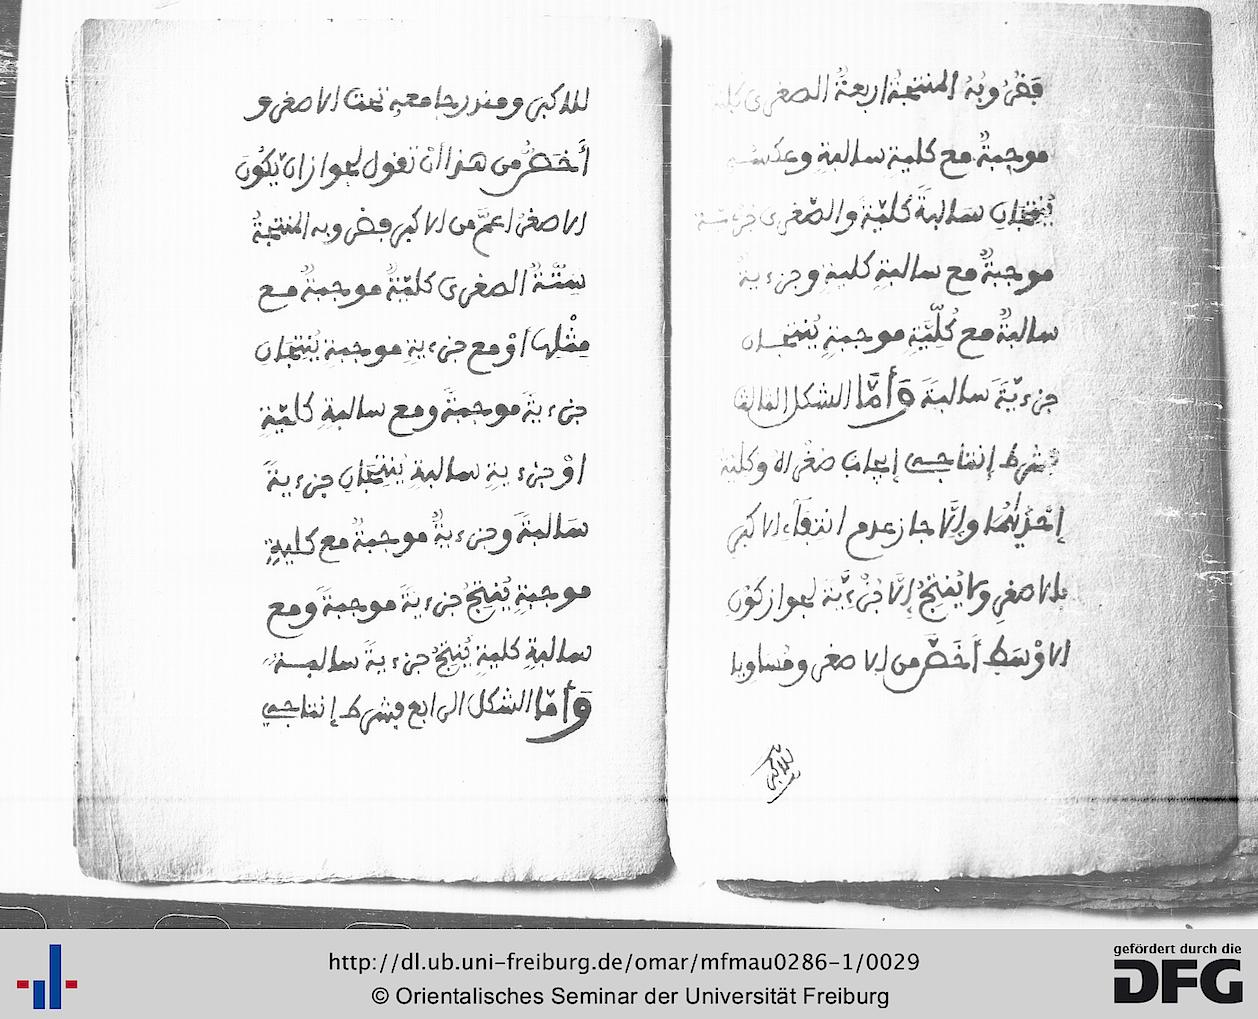 فضروبه المنتجة اربعة الصغرى كلية
موجبةٌ مع كلية سالبةٍ وعكسه
يُنتجانِ سَالبةً كُليّةً والصّغرى جزءية
موجبةٌ مع سالبةٍ كليةٍ وجزءيةٌ
سالبةٌ مع كُلّيَّةٍ موجبةٍ يُنتجان
جزءيّةً سالبةً وَأمَّا الشكل الثالث
فشرط إنتاجه إيجاب صغراه وكلية
إحْدَيْهُما وإلَّا جاز عدم التقاء الاكبر
بالاصغرِ ولا يُنتجُ إلَّا جُزْءِيَّة لجواز كَوْن
الاوْسَطِ أَخَصَّ من الاصغر ومُساويا
للاكبر
للاكبر ومندرجا معه تحت الاصغر و
أَخَصُّ من هذا أنْ تقول لجواز ان يكُونَ
الاصغرُ اعمَّ من الاكبر فضروبه المنتجةُ
سِتَّةٌ الصغرى كليّةٌ موجبةٌ مع
مِثْلها اوْ مع جزءيةٍ موجبةٍ يُنتجَانِ
جزءيةً موجبةً ومع سالبةٍ كليّةٍ
اوْ جزءيةٍ سالبةٍ يُنتِجَانِ جزءيةً
سَالبةً وجزءيةٌ موجبةٌ مع كليةٍ
موجبةٍ يُنتِجُ جزءيةً موجبةً ومع
سالبةٍ كليةٍ يُنتِجُ جزءيةً سالبة
وَأمّا الشكل الرابع فشرط إنتاجه
http://dl.ub.uni-freiburg.de/omar/mfmau0286-1/0029
© Orientalisches Seminar der Universität Freiburg
gefördert durch die
DFG